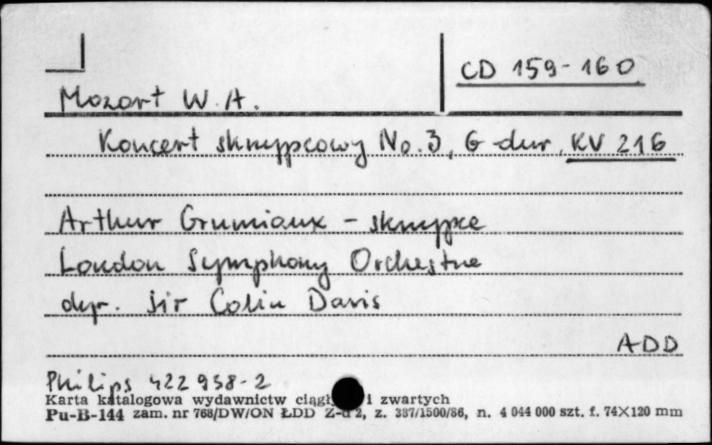 CD 159-160
Mozart W.A.
Koncert skrzypcowy No.3, G-dur, KV 216
Arthur Grumiaux - skrzypce
London Symphony Orchestra
dyr. Sir Colin Davis
ADD
Philips 422 938-2
Karta katalogowa wydawnictw i zwartych
Pu-B-144 zam. nr 768/DW/ON ŁDD z. 387/1500/86, n. 4 044 000 szt. f. 74×120 mm